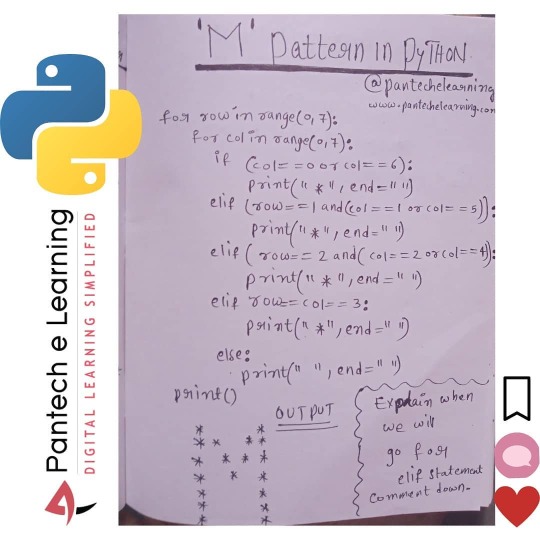 'M' Pattern in PyTHON
@pantechelearning
www.pantechelearning.com
for row in range(0,7):
for col in range(0,7):
if (col==0 or col==6):
print("*", end=" ")
elif (row==1 and(col==1 or col==5)):
print("*", end=" ")
elif (row==2 and(col==2 or col==4)):
print("*", end=" ")
elif row==col==3:
print("*", end=" ")
else:
print(" ", end=" ")
print()
OUTPUT
*     *
* *   * *
*   * *   *
*    *   *
*     *
*     *
*     *
Explain when
we will
go for
elif statement
Comment down.
Pantech e Learning
DIGITAL LEARNING SIMPLIFIED